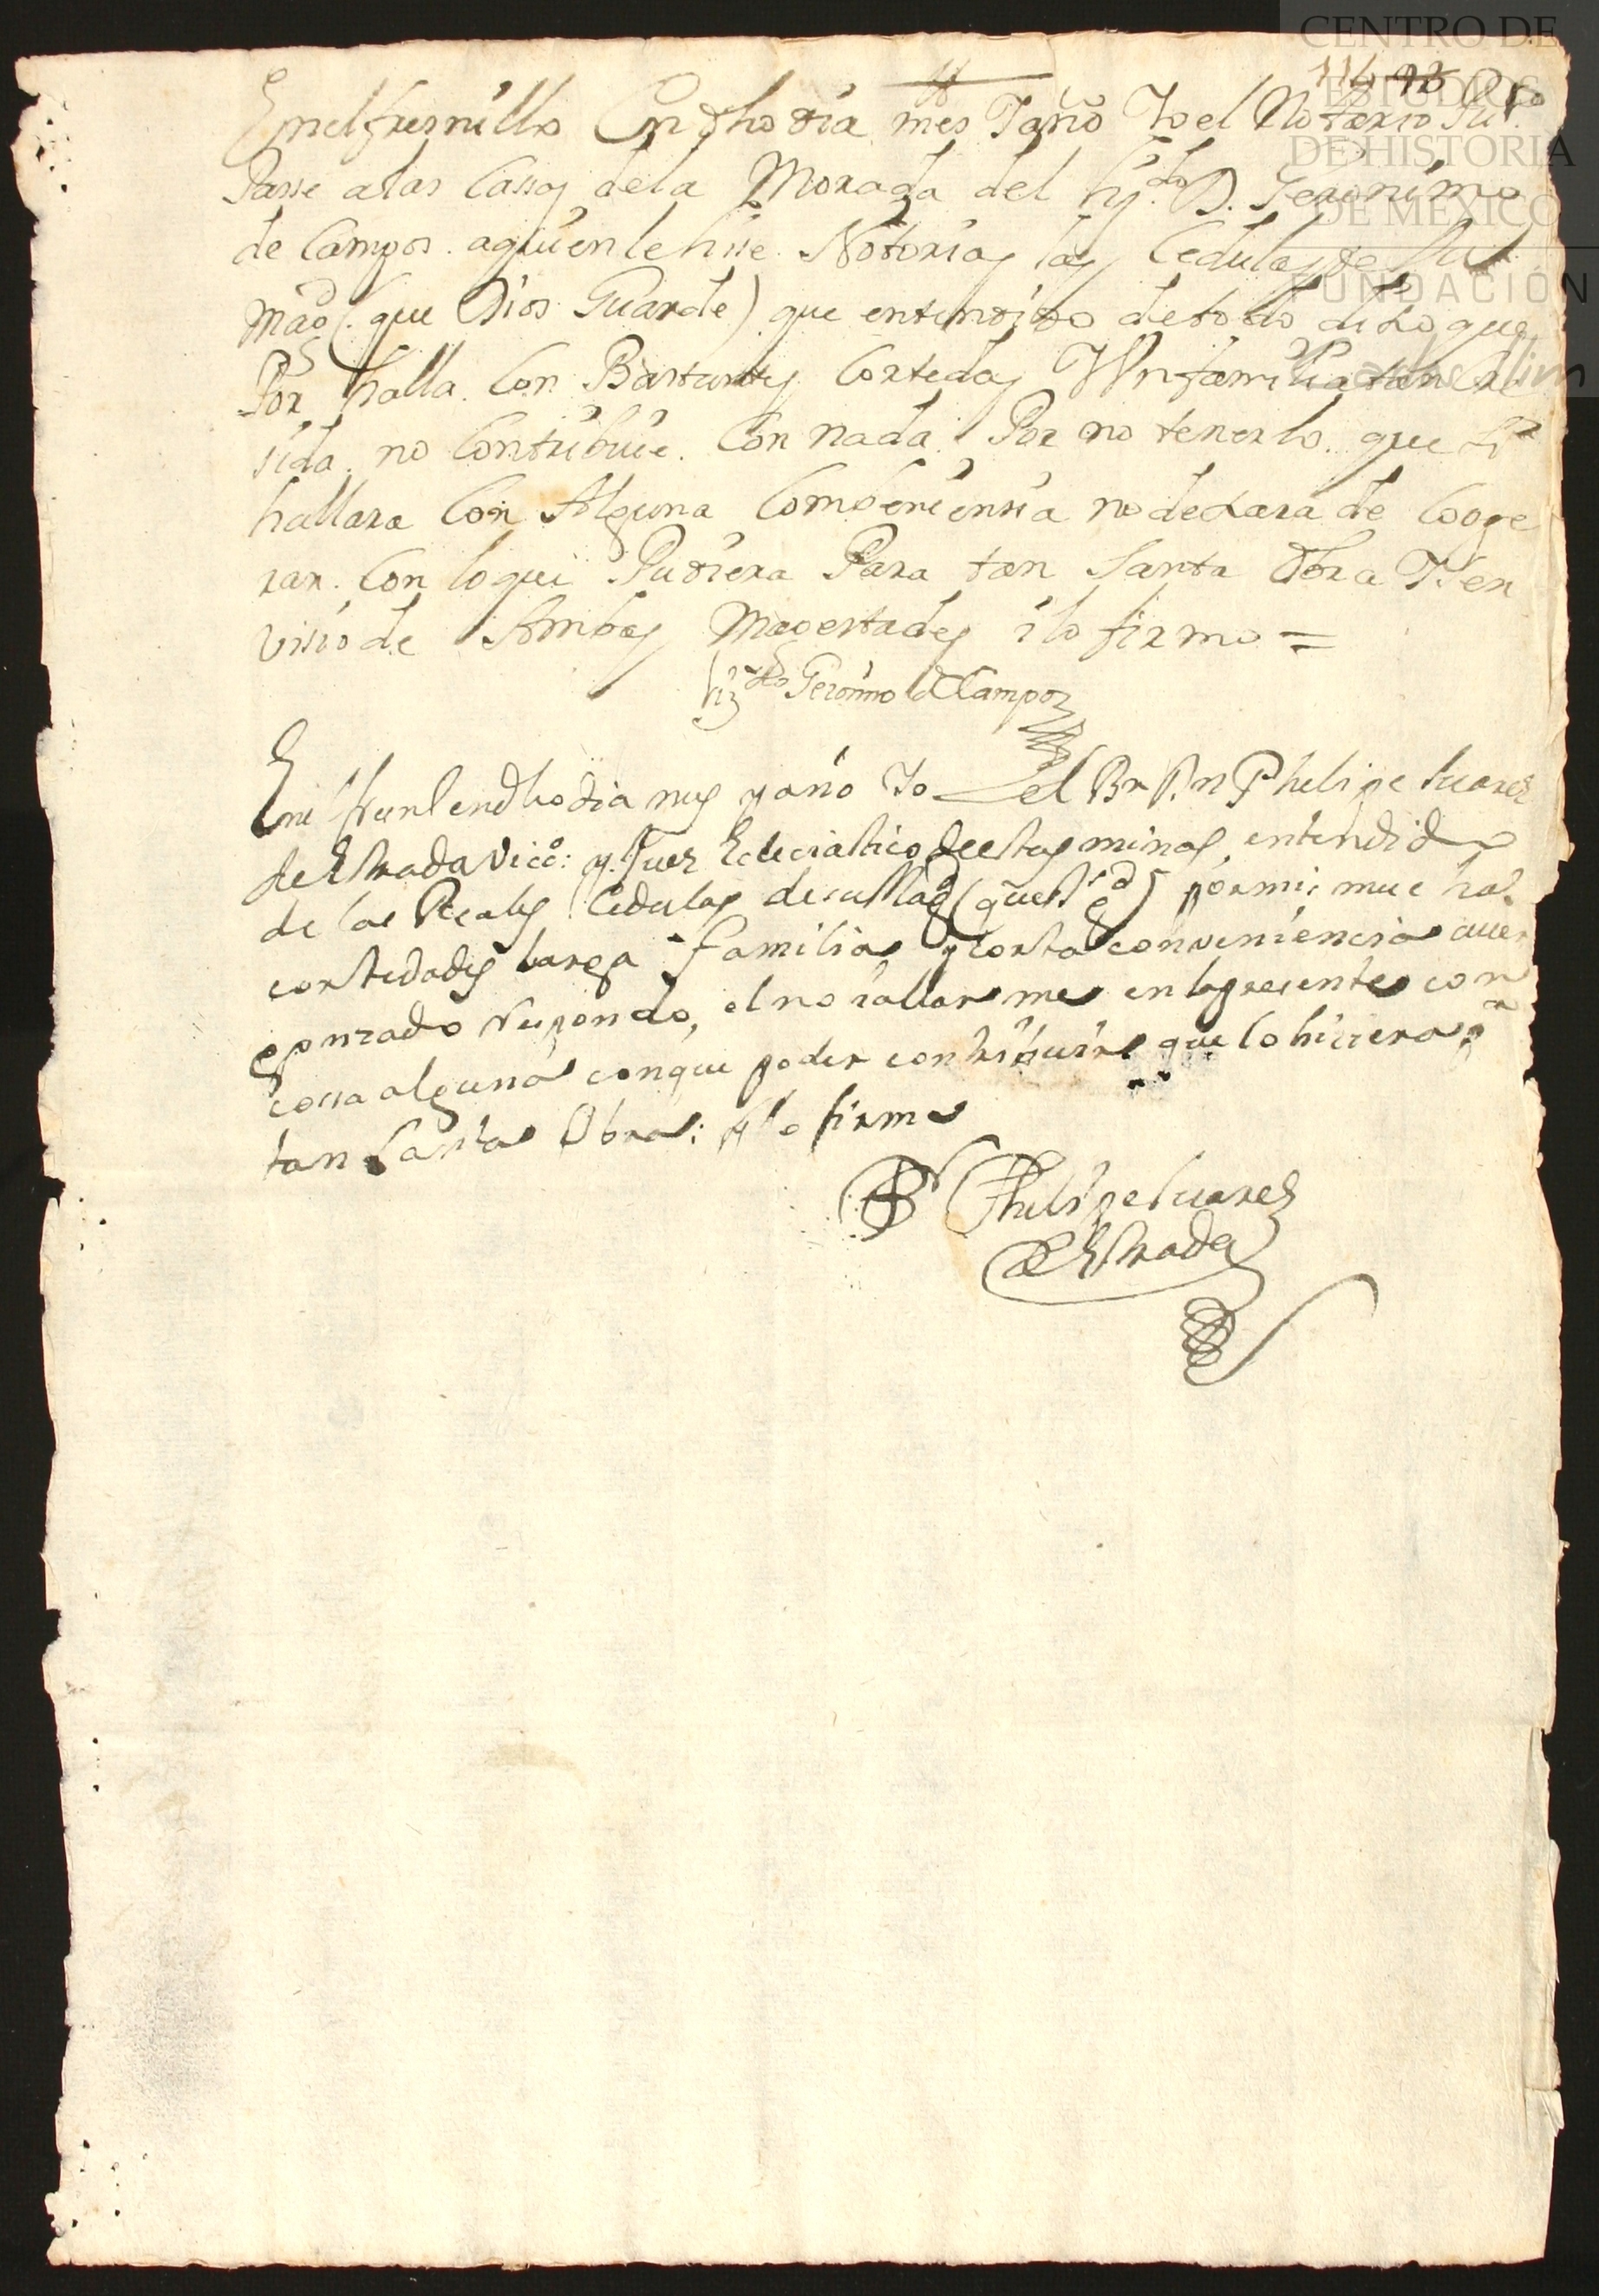 CENTRO DE
ESTUDIOS
DE HISTORIA
DE MÉXICO
FUNDACIÓN
114 93
En el fresnillo En dho dia mes Y año Yo el Notario Puco
Passe a las Cassas de la Morada del Lizdo D. Geronimo
de Campos. aquien le hise Notorias las Cedulas de Su
Magd (que Dios Guarde) que entendido de todo dixo que
Por halla Con Bastantes Cortedas Y Un familia tan cre
sida. no Contribuie. Con nada. Por no tenerlo. que si se
hallara Con Alguna Combeniensia no dexara de Coope
rar. Con loque Pudiera Para tan Santa Obra Y Ser
vissio de Ambas Magestades i lo firmo =
Lizdo Geronimo de Campos
En el frenl en dho dia mes y año Yo el Br Dn Phelipe Suares
de Estrada Vicco: y Juez Eclesiastico de estas minas, entendido
de las Reales Cedulas de su Magd (que Ds gd) por mis muchas
cortedades larga familia y corta conveniencia aver
gonzado respondo, el no hallarme en la presente con
cossa alguna conque poder contribuir que lo hiciera pa
tan Santa Obra: y lo firme
Br Phelipe Suares
de Estrada